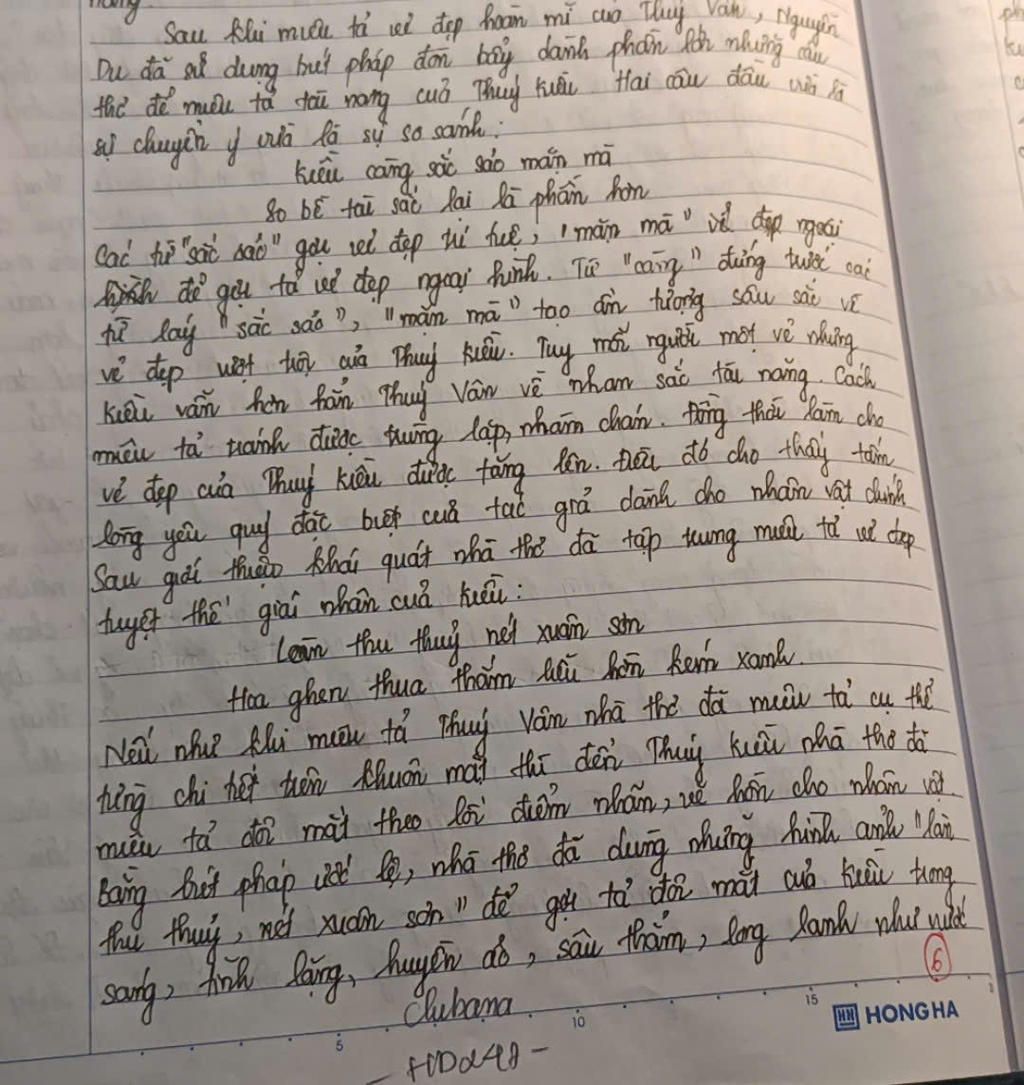 Sau khi miêu tả vẻ đẹp hoàn mĩ của Thuý Vân, Nguyễn
Du đã sử dụng bút pháp đòn bẩy dành phần lớn những câu
thơ để miêu tả tài năng của Thuý Kiều. Hai câu đầu vừa là
sự chuyển ý vừa là sự so sánh:
Kiều càng sắc sảo mặn mà
So bề tài sắc lại là phần hơn
Các từ "sắc sảo" gợi vẻ đẹp trí tuệ, "mặn mà" vẻ đẹp ngoài
hình để gợi tả vẻ đẹp ngoại hình. Từ "càng" đứng trước các
từ láy "sắc sảo", "mặn mà" tạo ấn tượng sâu sắc về
vẻ đẹp vượt trội của Thuý Kiều. Tuy mỗi người một vẻ nhưng
Kiều vẫn hơn hẳn Thuý Vân về nhan sắc tài năng. Cách
miêu tả tránh được trùng lặp, nhàm chán. Đồng thời làm cho
vẻ đẹp của Thuý Kiều được tăng lên. Điều đó cho thấy tấm
lòng yêu quý đặc biệt của tác giả dành cho nhân vật chính
Sau giới thiệu khái quát nhà thơ đã tập trung miêu tả vẻ đẹp
tuyệt thế giai nhân của Kiều:
Làn thu thuỷ nét xuân sơn
Hoa ghen thua thắm liễu hờn kém xanh.
Nếu như khi miêu tả Thuý Vân nhà thơ đã miêu tả cụ thể
từng chi tiết trên khuôn mặt thì đến Thuý Kiều nhà thơ đã
miêu tả đôi mắt theo lối điểm nhãn, vẽ hồn cho nhân vật.
Bằng bút pháp ước lệ, nhà thơ đã dùng những hình ảnh "làn
thu thuỷ, nét xuân sơn" để gợi tả đôi mắt của Kiều trong
sáng, tĩnh lặng, huyền ảo, sâu thẳm, long lanh như nước
6
5 10 15
HH HONG HA